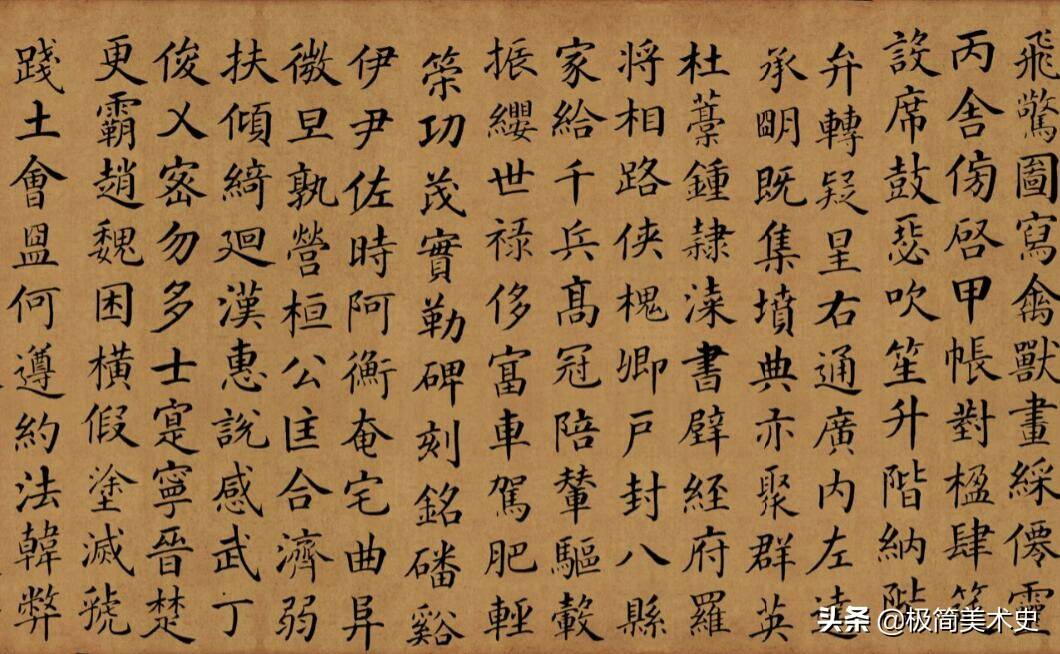 飛驚圖寫禽獸畫綵僊靈
丙舍傍啓甲帳對楹肆筵
設席鼓瑟吹笙升階納陛
弁轉疑星右通廣内左達
承明既集墳典亦聚群英
杜藁鍾隸漆書壁經府羅
將相路俠槐卿戶封八縣
家給千兵高冠陪輦驅轂
振纓世禄侈富車駕肥輕
策功茂實勒碑刻銘磻谿
伊尹佐時阿衡奄宅曲阜
微旦孰營桓公匡合濟弱
扶傾綺迴漢惠說感武丁
俊乂密勿多士寔寧晉楚
更霸趙魏困橫假塗滅虢
踐土會盟何遵約法韓弊
头条 @极简美术史